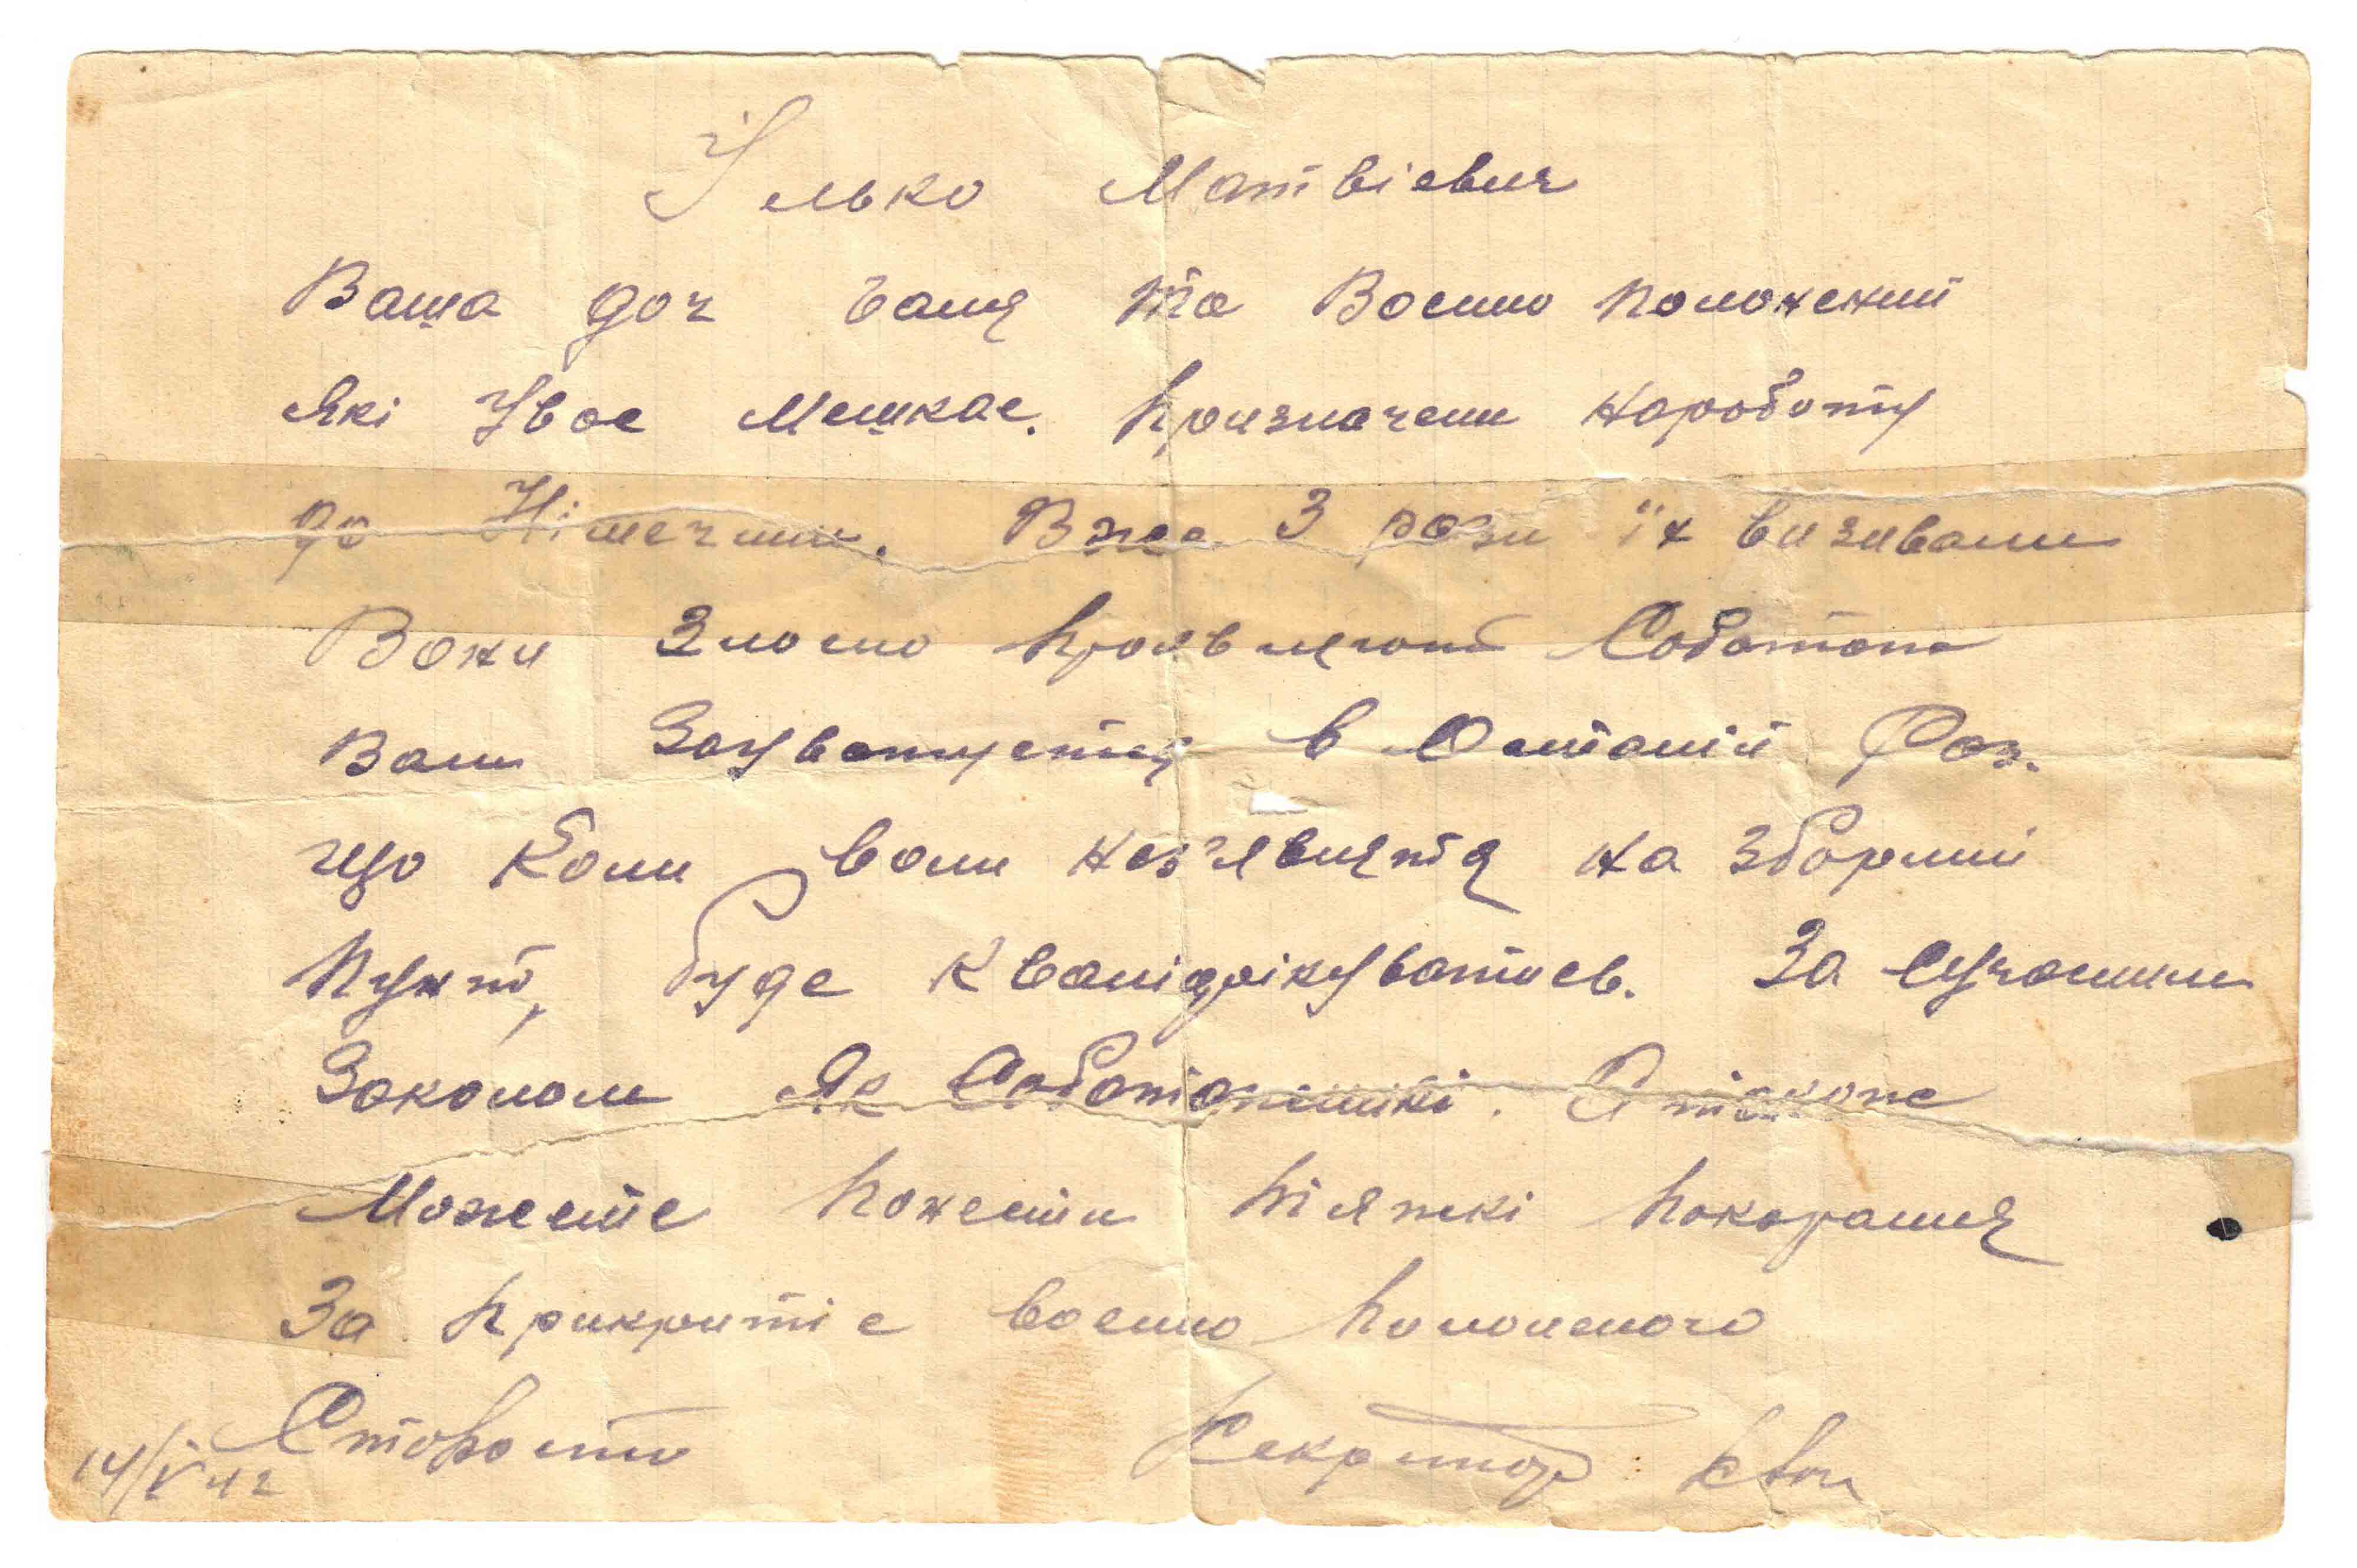 Ілько Матвієвич
Ваша доч Галя та Воєнно полонений
Які Увас Мешкає. Призначени Нароботу
до Німеччини. Вже 3 рази їх визивали
Вони Злосно проявляют Соботаж
Вам Заувожується в Останій Раз.
що Коли вони нез'являтся на зборний
Пункт, буде Кваліфікуватись. За Сучасним
Законом Як Соботажники. А також
Можете понести тіяжкі покарання
За прикритіє воєнно Полоненого
Староста Секретар
14/V 42